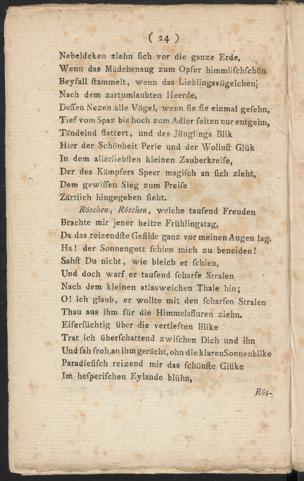 ( 24 )
Nebeldeken ziehn ſich vor die ganze Erde,
Wenn das Mädchenaug zum Opfer himmliſchſchön
Beyfall ſtammelt, wenn das Lieblingsvögelchen
Nach dem zartumlaubten Heerde,
Deſſen Nezen alle Vögel, wenn ſie ſie einmal geſehn,
Tief vom Spaz bis hoch zum Adler ſelten nur entgehn,
Tändelnd flattert, und des Jünglings Blik
Hier der Schönheit Perle und der Wolluſt Glük
In dem allerliebſten kleinen Zauberkreiſe,
Der des Kämpfers Speer magiſch an ſich zieht,
Dem gewiſſen Sieg zum Preiſe
Zärtlich hingegeben ſieht.
Röschen, Röschen, welche tauſend Freuden
Brachte mir jener heitre Frühlingtag,
Da das reizendſte Gefilde ganz vor meinen Augen lag.
Ha! der Sonnengott ſchien mich zu beneiden!
Sahſt Du nicht, wie bleich er ſchien,
Und doch warf er tauſend ſcharfe Stralen
Nach dem kleinen atlasweichen Thale hin;
O! ich glaub, er wollte mit den ſcharfen Stralen
Thau aus ihm für die Himmelsfluren ziehn.
Eiferſüchtig über die vertieften Blike
Trat ich überſchattend zwiſchen Dich und ihn
Und ſah froh, an ihm gerächt, ohn die klaren Sonnenblike
Paradieſiſch reizend mir das ſchönſte Glüke
Im heſperiſchen Eylande blühn,
Rös-